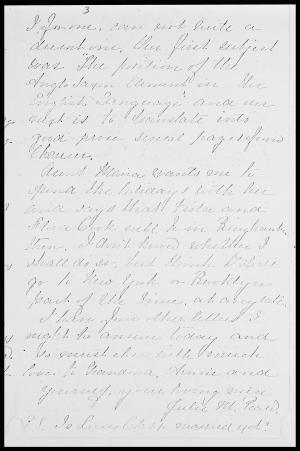 3
I, for one, can not write a
decent one. Our first subject
was "The position of the
Anglo Saxon Element in the
English Language" and our
next is to translate into
good prose several pages from
Chaucer.
Aunt Maria wants me to
spend the holidays with her
and says that and
Cook will be in
I don't know whether I
shall do so, but think I shall
go to New York or Brooklyn
part of the time, at any rate.
I have four other letters I
ought to answer today and
so must close with much
love to Grandma, Annie and
yourself, your loving niece
Julia M.
P.S. Is Lucy married yet?